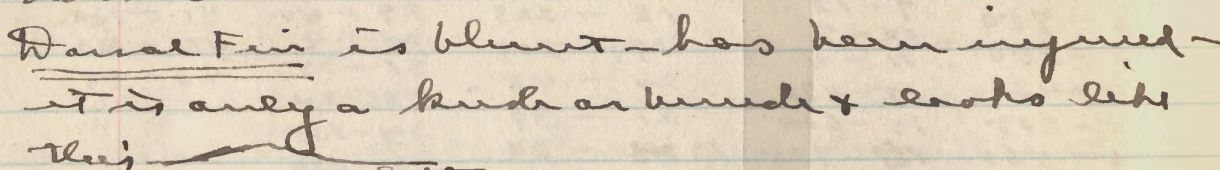 Dorsal Fin is blunt - has been injured -
it is only a knob or bunch & looks like
this